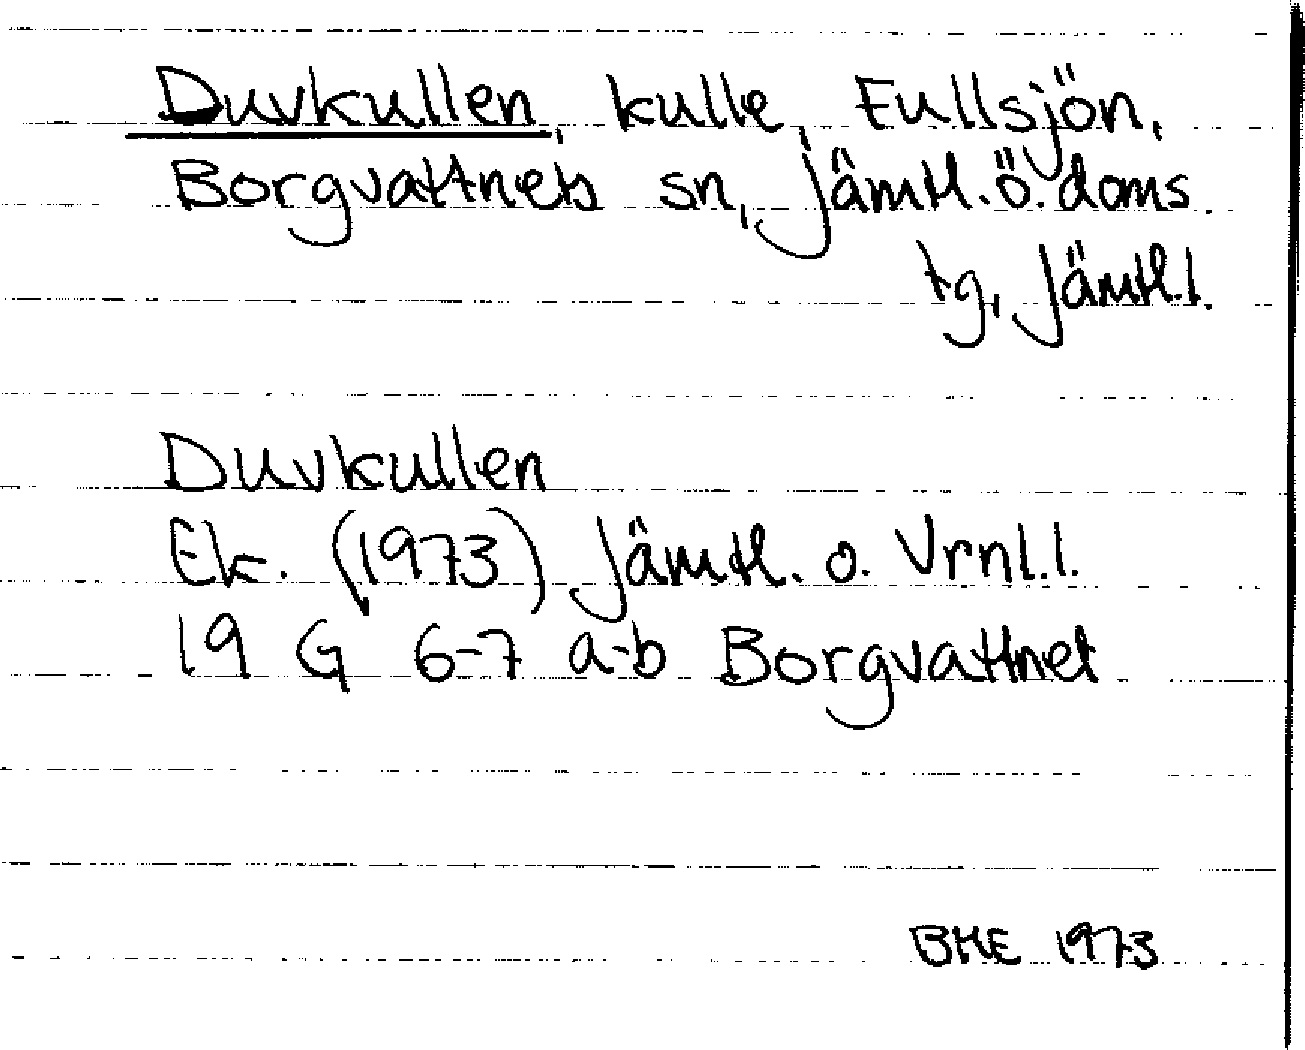 Duvkullen, kulle, Fullsjön,
Borgvattnets sn, Jämtl.ö.doms
tg, Jämtl.l.
Duvkullen
Ek. (1973) Jämtl. o. Vrnl.l.
19 G 6-7 a-b Borgvattnet
BME 1973